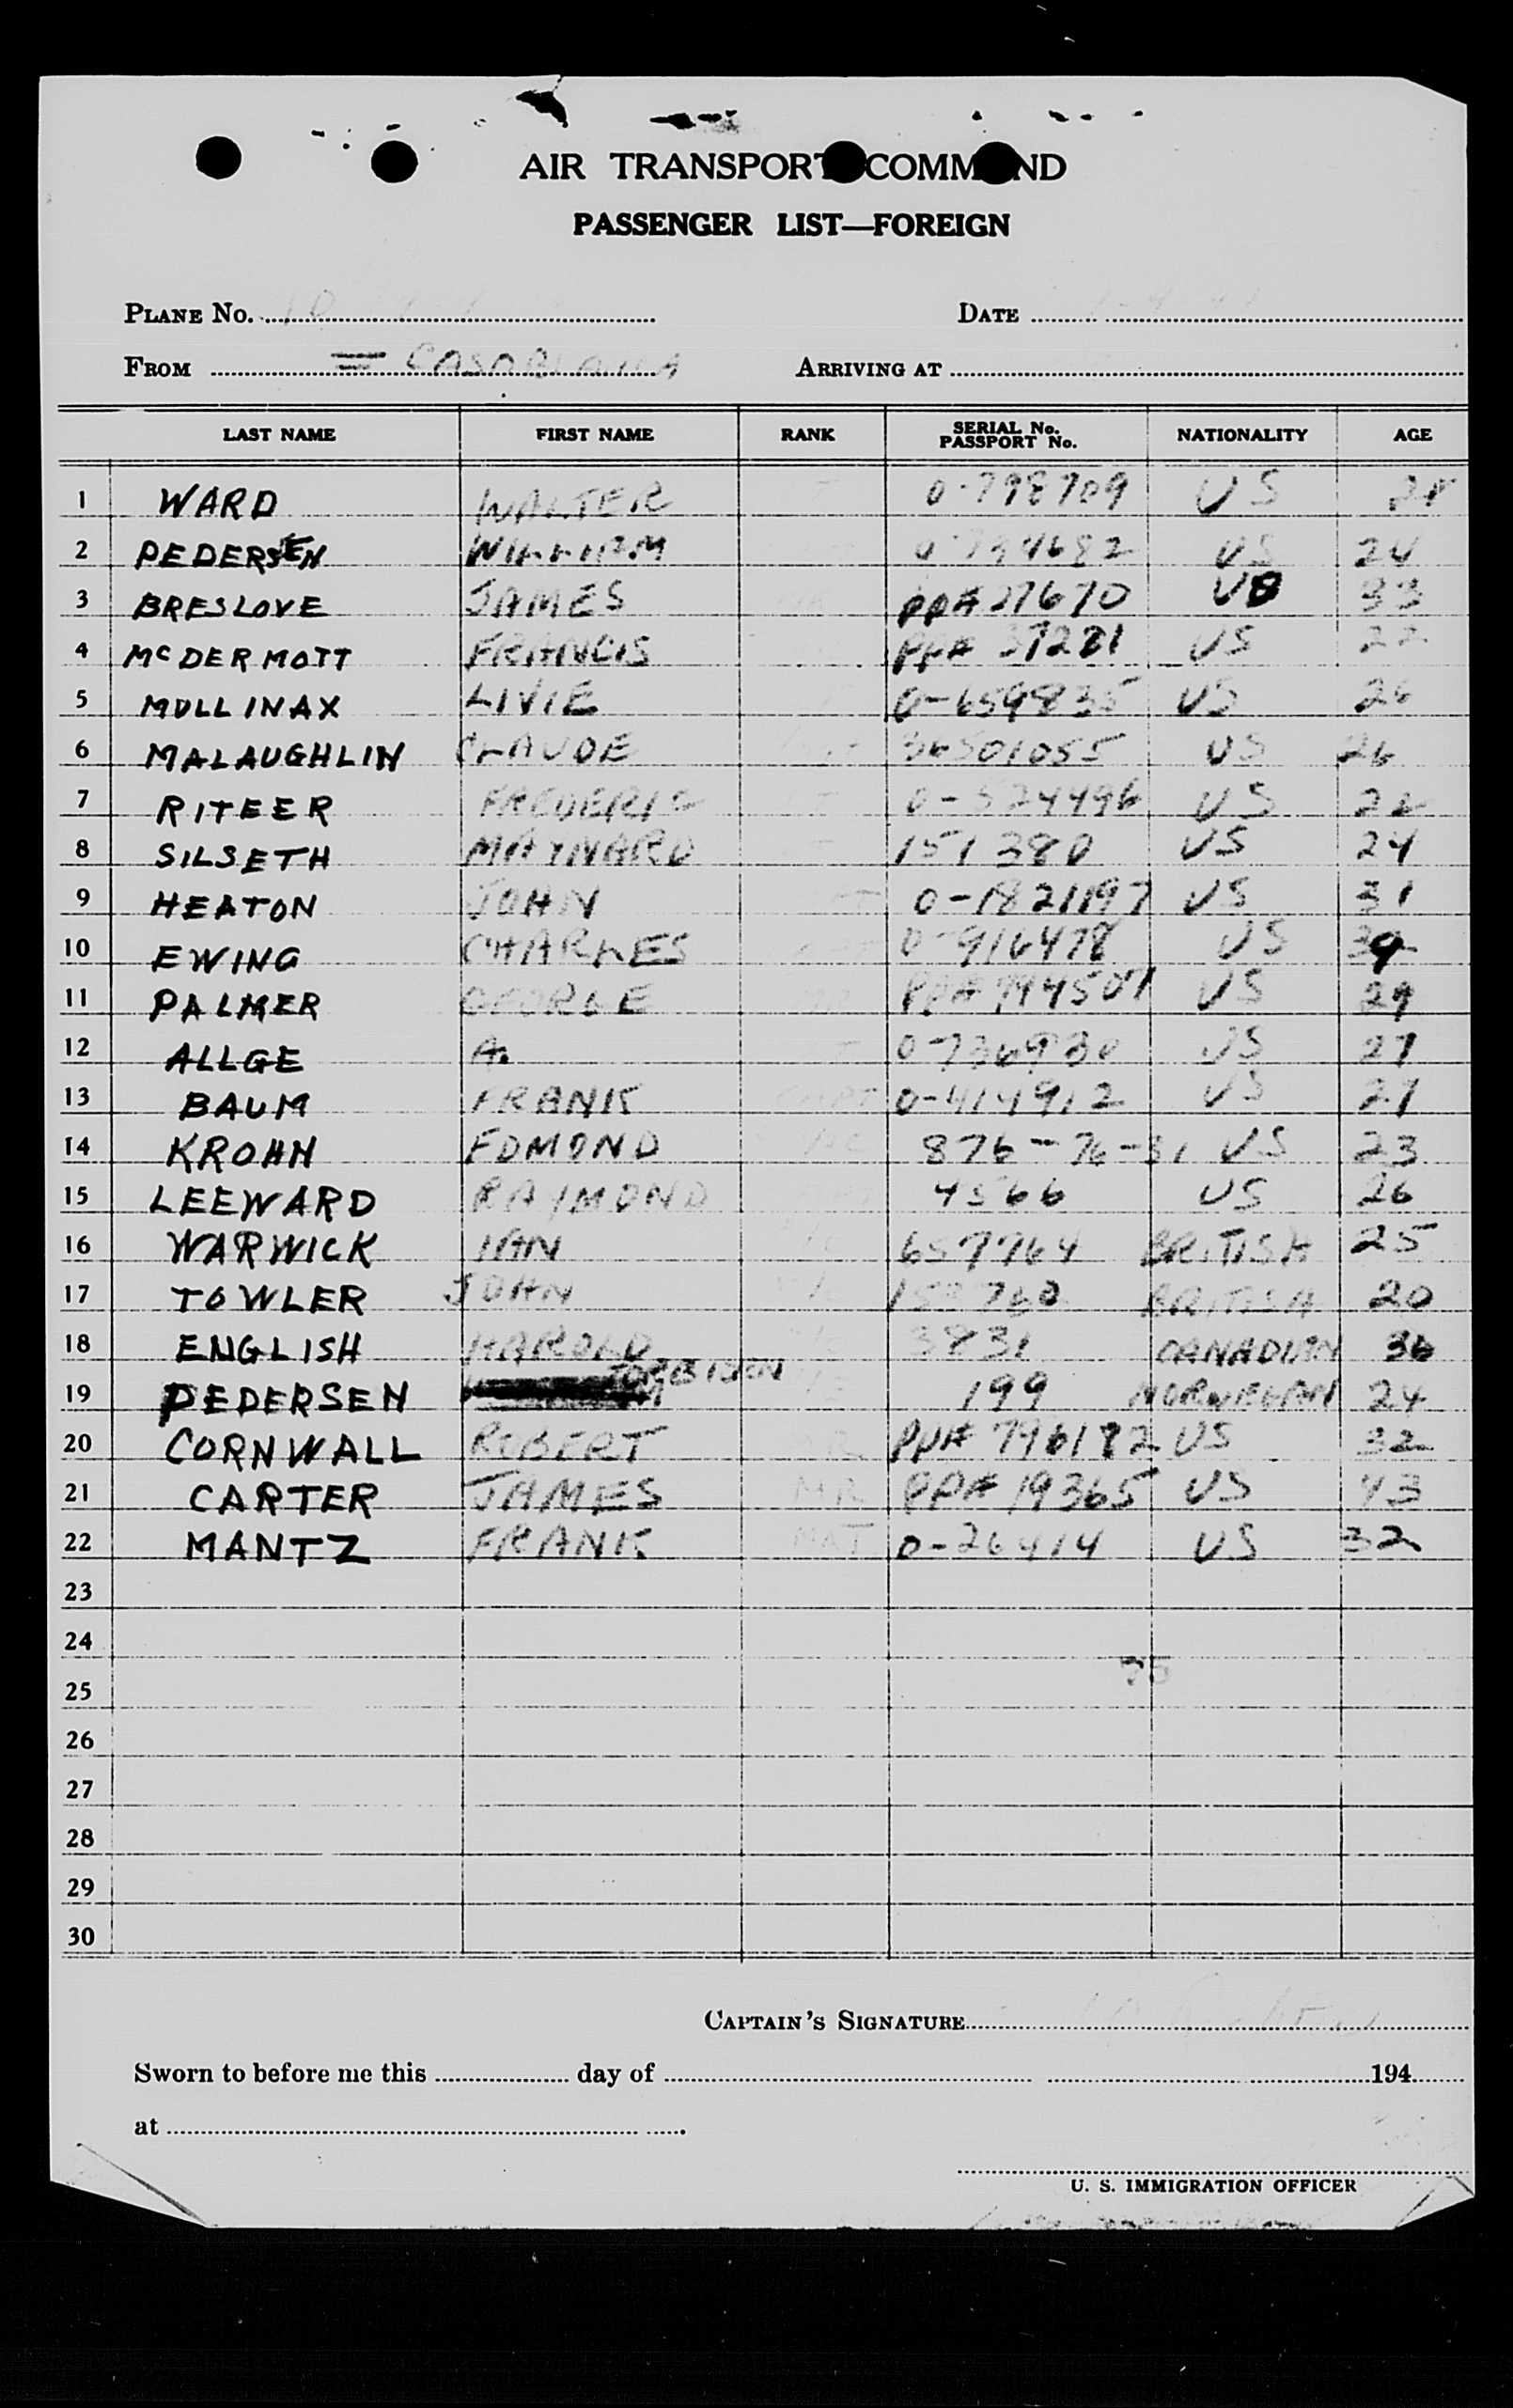 AIR TRANSPORT COMMAND
PASSENGER LIST—FOREIGN
PLANE NO. DATE
FROM CASABLANCA ARRIVING AT
LAST NAME FIRST NAME RANK SERIAL No. PASSPORT No. NATIONALITY AGE
1 WARD WALTER 0-798709 US
2 PEDERSEN WILLIAM US 24
3 BRESLOVE JAMES PP# 27670 33
4 McDERMOTT FRANCIS PP# 37281 US 22
5 MULLINAX LIVIE 0-659835 US 26
6 MALAUGHLIN CLAUDE 36501055 US 26
7 RITEER FREDERIC 0-524496 US 22
8 SILSETH MAYNARD 151380 US 24
9 HEATON JOHN 0-1821197 US 31
10 EWING CHARLES 0-916478 US
11 PALMER GEORGE PP# 794507 US 29
12 ALLGE A. 0-736930 US 27
13 BAUM FRANK CAPT 0-414912 US 27
14 KROHN EDMOND 876-76-31 US 23
15 LEEWARD RAYMOND 4566 US 26
16 WARWICK IAN 657764 BRITISH 25
17 TOWLER JOHN BRITISH 20
18 ENGLISH HAROLD 3831 CANADIAN 36
19 PEDERSEN 199 NORWEGAN 24
20 CORNWALL ROBERT PP# 796182 US 32
21 CARTER JAMES MR PP# 19365 US 43
22 MANTZ FRANK 0-26414 US 32
23
24
25
26
27
28
29
30
CAPTAIN'S SIGNATURE
Sworn to before me this day of 194
at
U. S. IMMIGRATION OFFICER